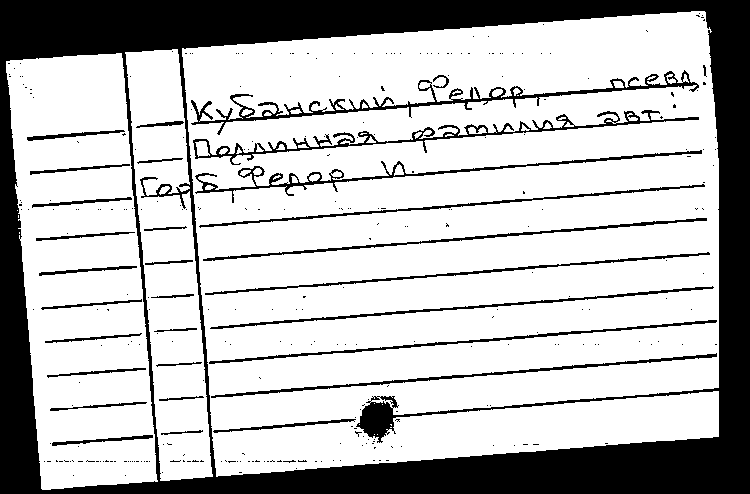 Кубанский, Федор, псевд!
Подлинная фамилия авт.:
Горб, Федор И.